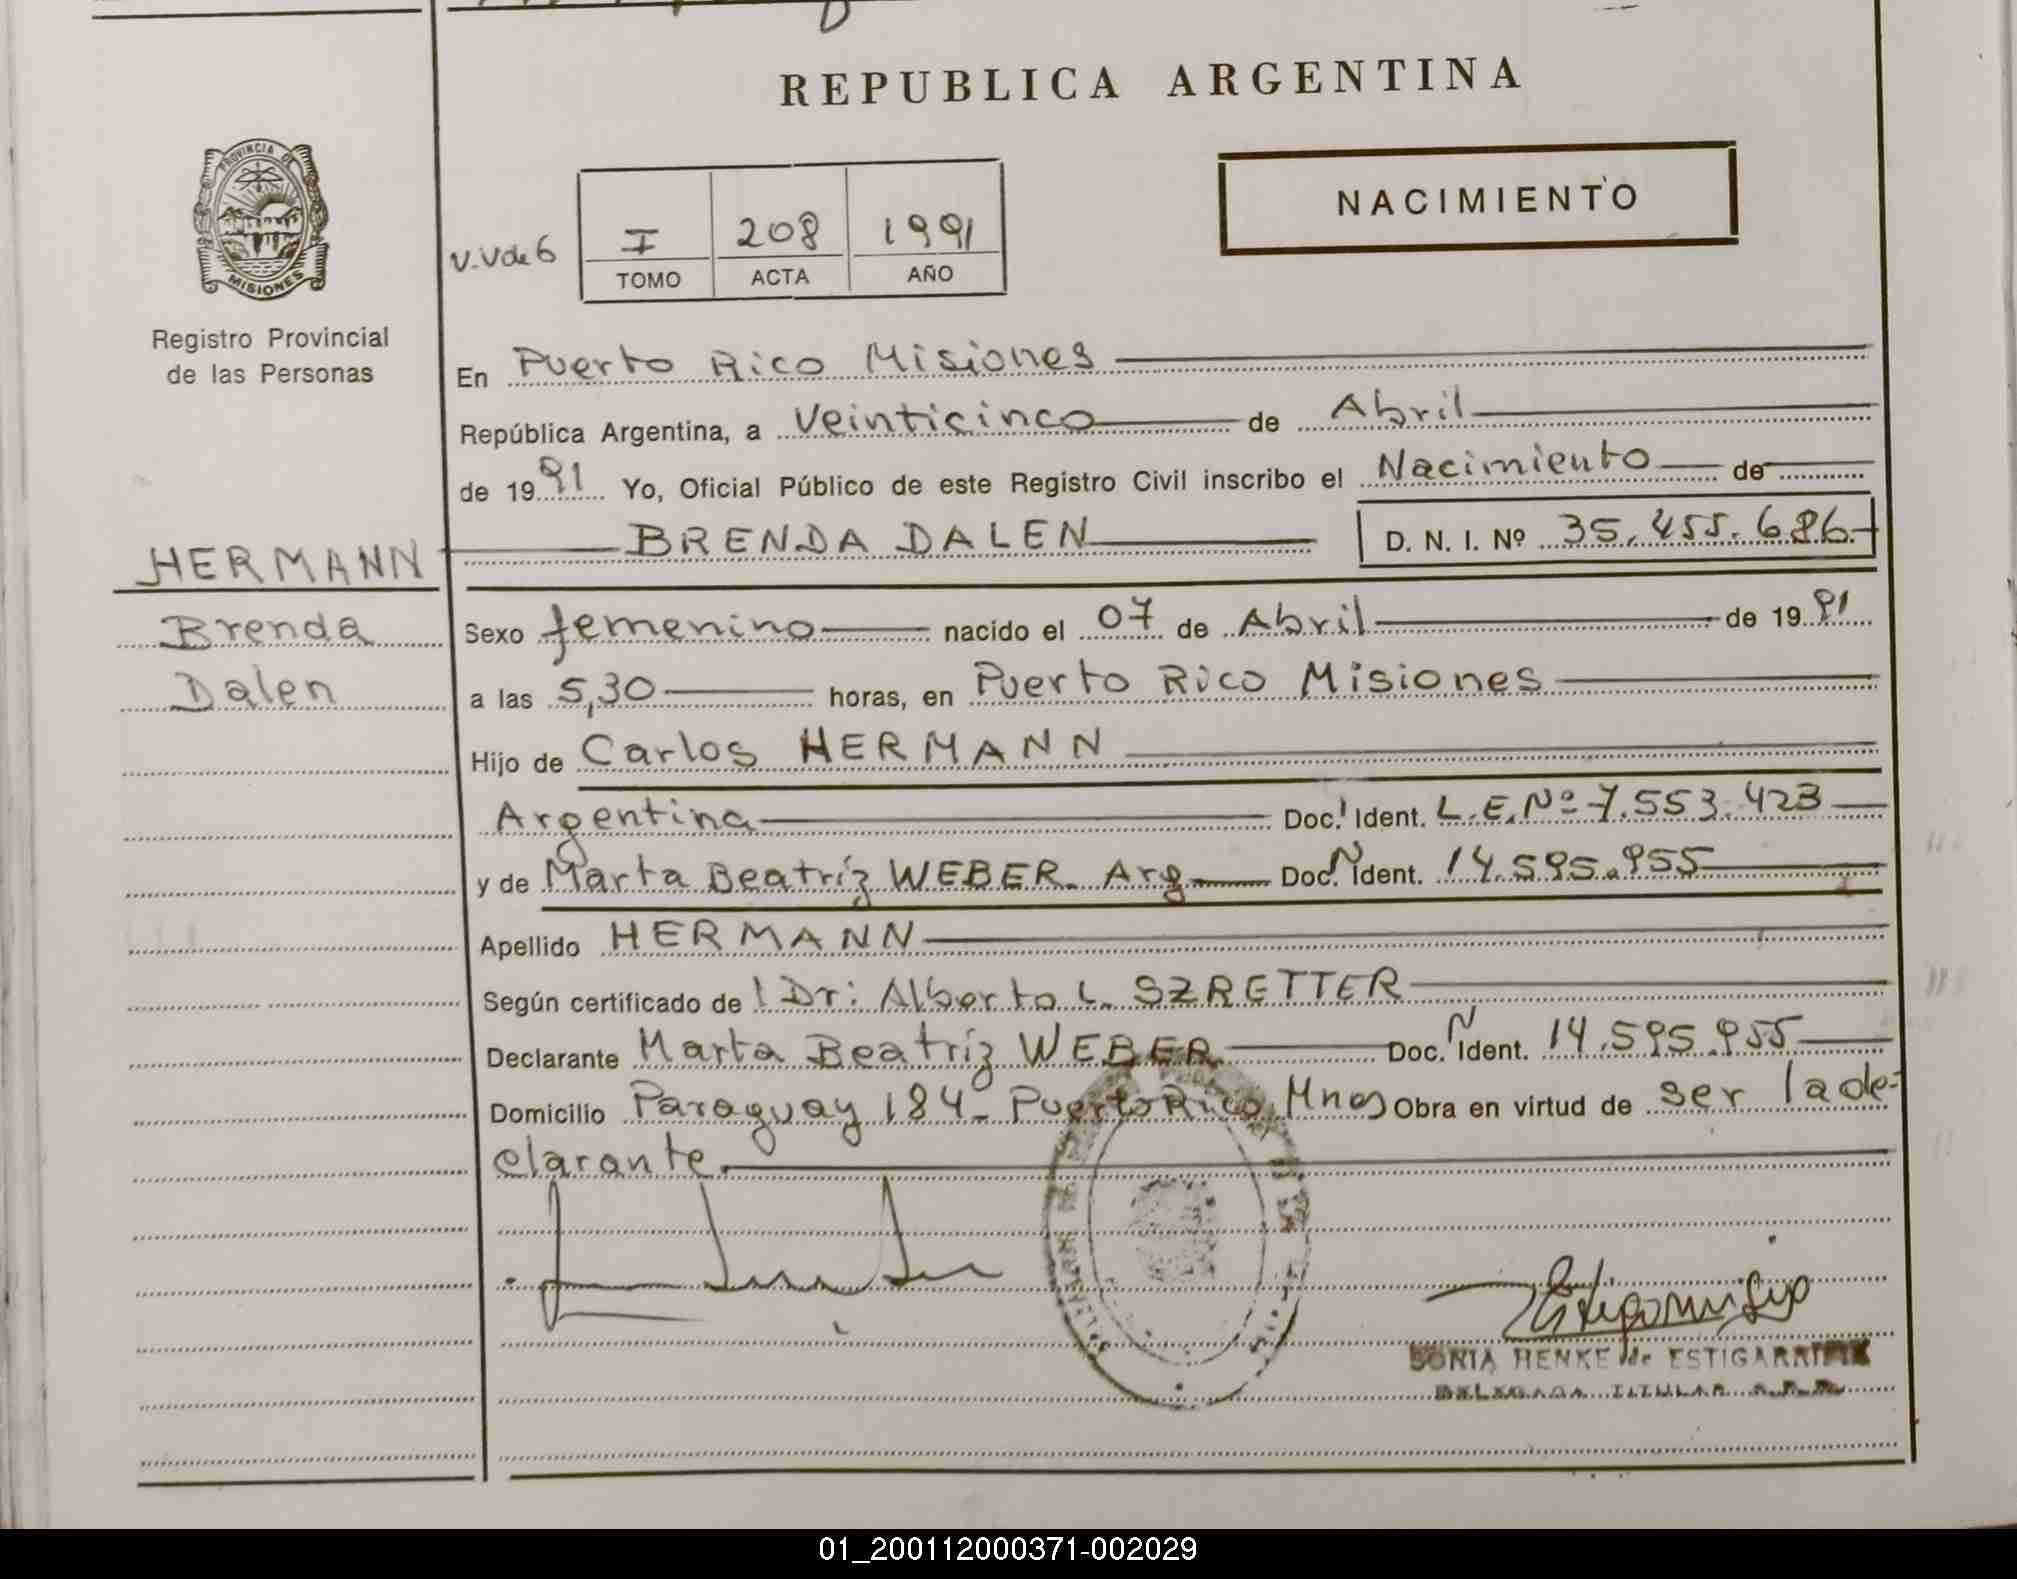 REPUBLICA ARGENTINA
PROVINCIA DE MISIONES
Registro Provincial
de las Personas
NACIMIENTO
V.Vde6
I 208 1991
TOMO ACTA AÑO
En Puerto Rico Misiones
República Argentina, a Veinticinco de Abril
de 1991 Yo, Oficial Público de este Registro Civil inscribo el Nacimiento de
HERMANN
BRENDA DALEN D. N. I. Nº 35.455.686.-
Brenda
Sexo femenino nacido el 07 de Abril de 1991
Dalen
a las 5,30 horas, en Puerto Rico Misiones
Hijo de Carlos HERMANN
Argentina Doc. Ident. L.E.Nº 7.553.423
y de Marta Beatríz WEBER. Arg Doc. N Ident. 14.595.955
Apellido HERMANN
Según certificado de Dr: Alberto L. SZRETTER
Declarante Marta Beatríz WEBER Doc. N Ident. 14.595.955
Domicilio Paraguay 184- Puerto Rico, Mnes Obra en virtud de ser la de-
clarante.
SONIA HENKE de ESTIGARRIBIA
DELEGADA TITULAR
01_200112000371-002029